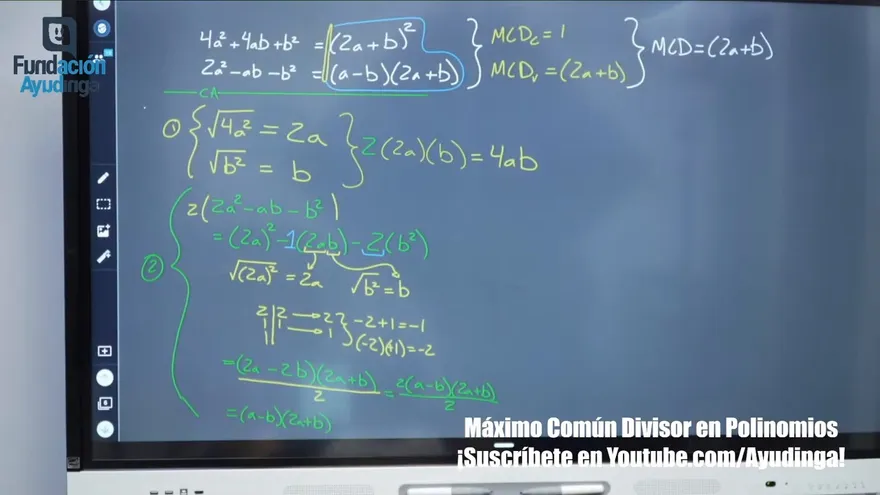 Fundación
Ayudinga
4a²+4ab+b² = (2a+b)² } MCDc = 1
2a²-ab-b² = (a-b)(2a+b) } MCDv = (2a+b) } MCD = (2a+b)
CA
① { √4a² = 2a
√b² = b } 2(2a)(b) = 4ab
② { 2(2a²-ab-b²)
= (2a)² - 1(2ab) - 2(b²)
√(2a)² = 2a √b² = b
2 | 2 → 2 } -2+1=-1
1 | 1 → 1 } (-2)(+1)=-2
1
= (2a-2b)(2a+b)/2 = 2(a-b)(2a+b)/2
= (a-b)(2a+b)
Máximo Común Divisor en Polinomios
¡Suscríbete en Youtube.com/Ayudinga!